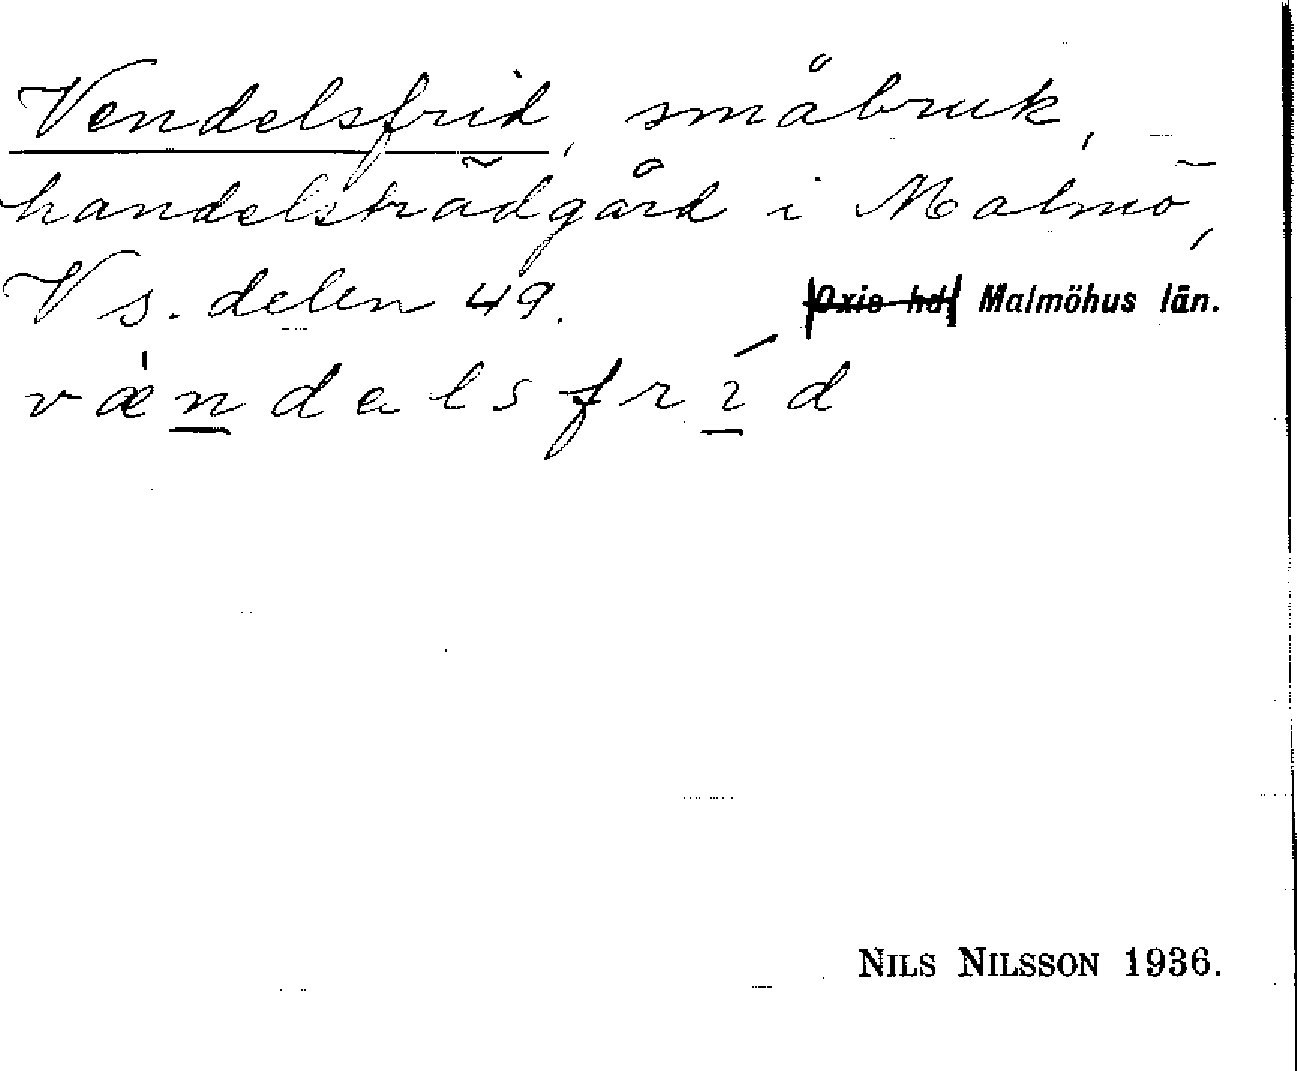 Vendelsfrid, småbruk,
handelsträdgård i Malmö,
V s. delen 49. Oxie hd. Malmöhus län.
vændalsfríd
NILS NILSSON 1936.